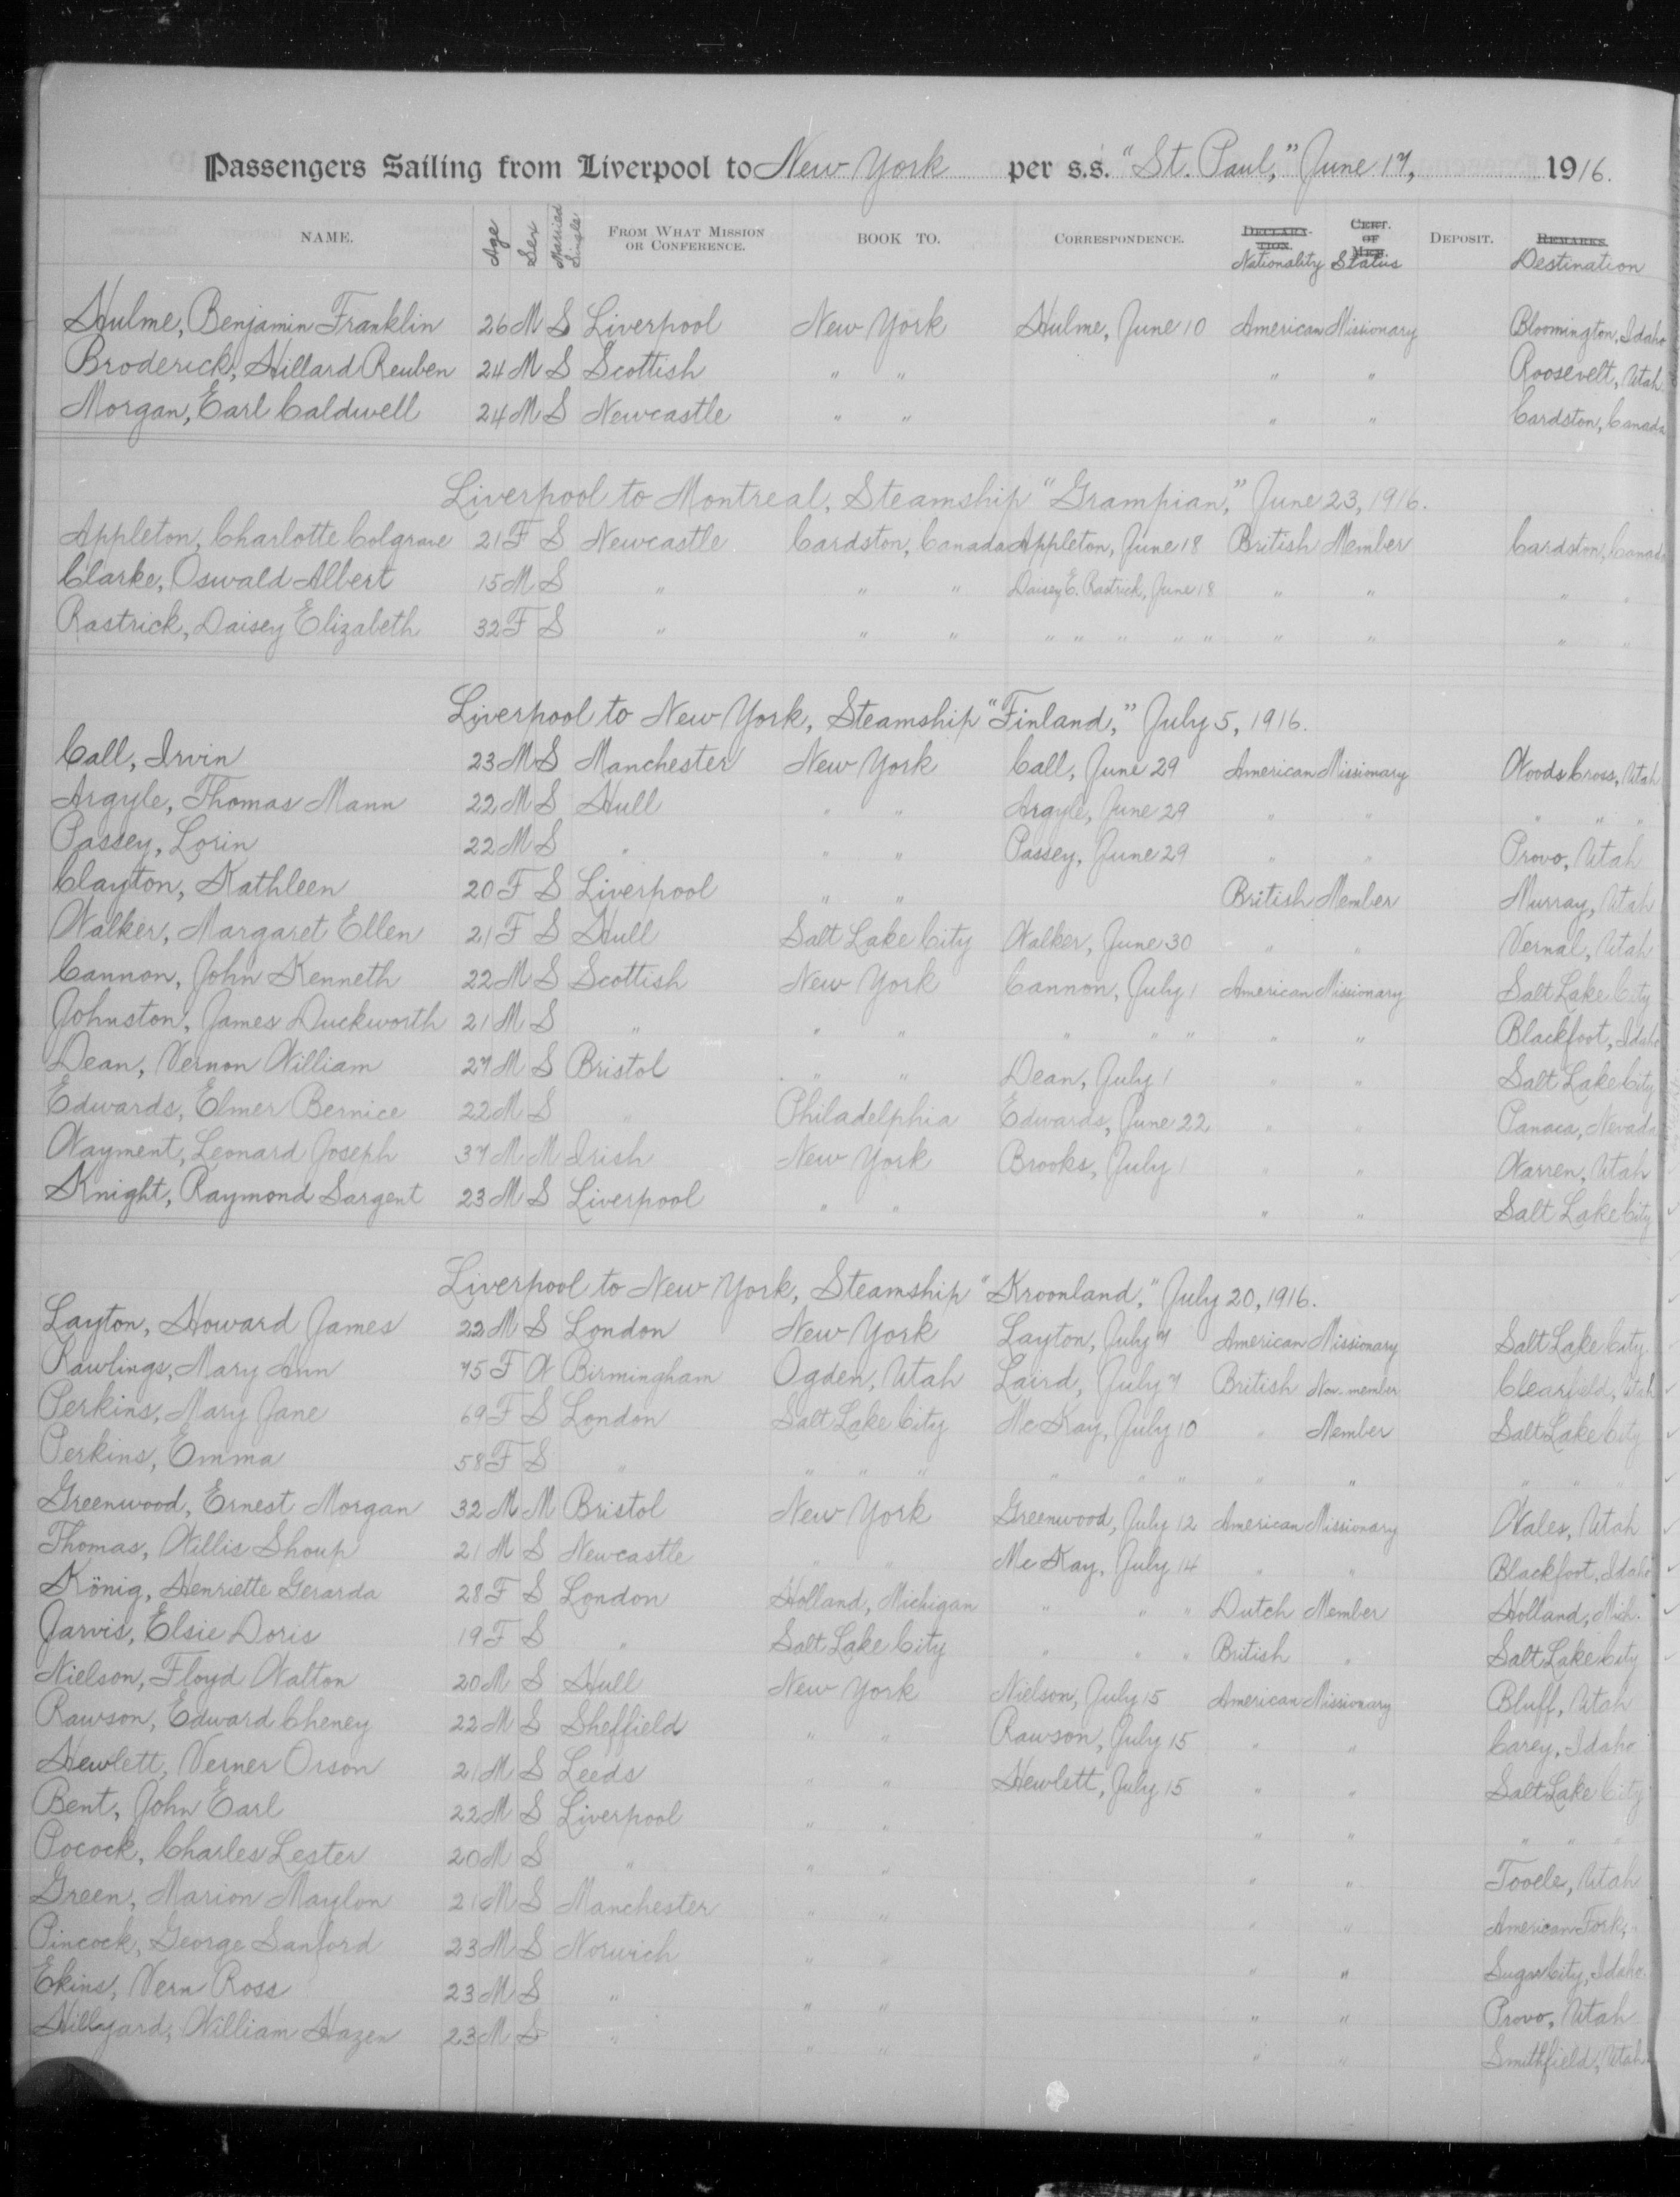 Passengers Sailing from Liverpool to New York per s.s. "St. Paul," June 17, 1916.
NAME. Age Sex Married Single FROM WHAT MISSION OR CONFERENCE. BOOK TO. CORRESPONDENCE. DECLARATION. Nationality CERT. OF MEM. Status DEPOSIT. REMARKS. Destination
Hulme, Benjamin Franklin 26 M S Liverpool New York Hulme, June 10 American Missionary Bloomington, Idaho
Broderick, Hillard Reuben 24 M S Scottish " " " " Roosevelt, Utah
Morgan, Earl Caldwell 24 M S Newcastle " " " " Cardston, Canada
Liverpool to Montreal, Steamship "Grampian," June 23, 1916.
Appleton, Charlotte Colgrave 21 F S Newcastle Cardston, Canada Appleton, June 18 British Member Cardston, Canada
Clarke, Oswald Albert 15 M S " " " Daisey E. Rastrick, June 18 " " " "
Rastrick, Daisey Elizabeth 32 F S " " " " " " " " " " " "
Liverpool to New York, Steamship "Finland," July 5, 1916.
Call, Irvin 23 M S Manchester New York Call, June 29 American Missionary Woods Cross, Utah
Argyle, Thomas Mann 22 M S Hull " " Argyle, June 29 " " " " "
Passey, Lorin 22 M S " " " Passey, June 29 " " Provo, Utah
Clayton, Kathleen 20 F S Liverpool " " British Member Murray, Utah
Walker, Margaret Ellen 21 F S Hull Salt Lake City Walker, June 30 " " Vernal, Utah
Cannon, John Kenneth 22 M S Scottish New York Cannon, July 1 American Missionary Salt Lake City
Johnston, James Duckworth 21 M S " " " " " " " " Blackfoot, Idaho
Dean, Vernon William 27 M S Bristol " " Dean, July 1 " " Salt Lake City
Edwards, Elmer Bernice 22 M S " Philadelphia Edwards, June 22 " " Panaca, Nevada
Wayment, Leonard Joseph 37 M M Irish New York Brooks, July 1 " " Warren, Utah
Knight, Raymond Sargent 23 M S Liverpool " " " " Salt Lake City
Liverpool to New York, Steamship "Kroonland," July 20, 1916.
Layton, Howard James 22 M S London New York Layton, July 7 American Missionary Salt Lake City
Rawlings, Mary Ann 75 F W Birmingham Ogden, Utah Laird, July 7 British Non. member Clearfield, Utah
Perkins, Mary Jane 69 F S London Salt Lake City McKay, July 10 " Member Salt Lake City
Perkins, Emma 58 F S " " " " " " " " " " " "
Greenwood, Ernest Morgan 32 M M Bristol New York Greenwood, July 12 American Missionary Wales, Utah
Thomas, Willis Shoup 21 M S Newcastle " " McKay, July 14 " " Blackfoot, Idaho
König, Henriette Gerarda 28 F S London Holland, Michigan " " " Dutch Member Holland, Mich.
Jarvis, Elsie Doris 19 F S " Salt Lake City " " " British " Salt Lake City
Nielson, Floyd Walton 20 M S Hull New York Nielson, July 15 American Missionary Bluff, Utah
Rawson, Edward Cheney 22 M S Sheffield " " Rawson, July 15 " " Carey, Idaho
Hewlett, Verner Orson 21 M S Leeds " " Hewlett, July 15 " " Salt Lake City
Bent, John Earl 22 M S Liverpool " " " " " " "
Pocock, Charles Lester 20 M S " " " " " Tooele, Utah
Green, Marion Maylon 21 M S Manchester " " " " American Fork, "
Pincock, George Sanford 23 M S Norwich " " " " Sugar City, Idaho.
Ekins, Vern Ross 23 M S " " " " " Provo, Utah
Hillyard, William Hazen 23 M S " " " " " Smithfield, Utah